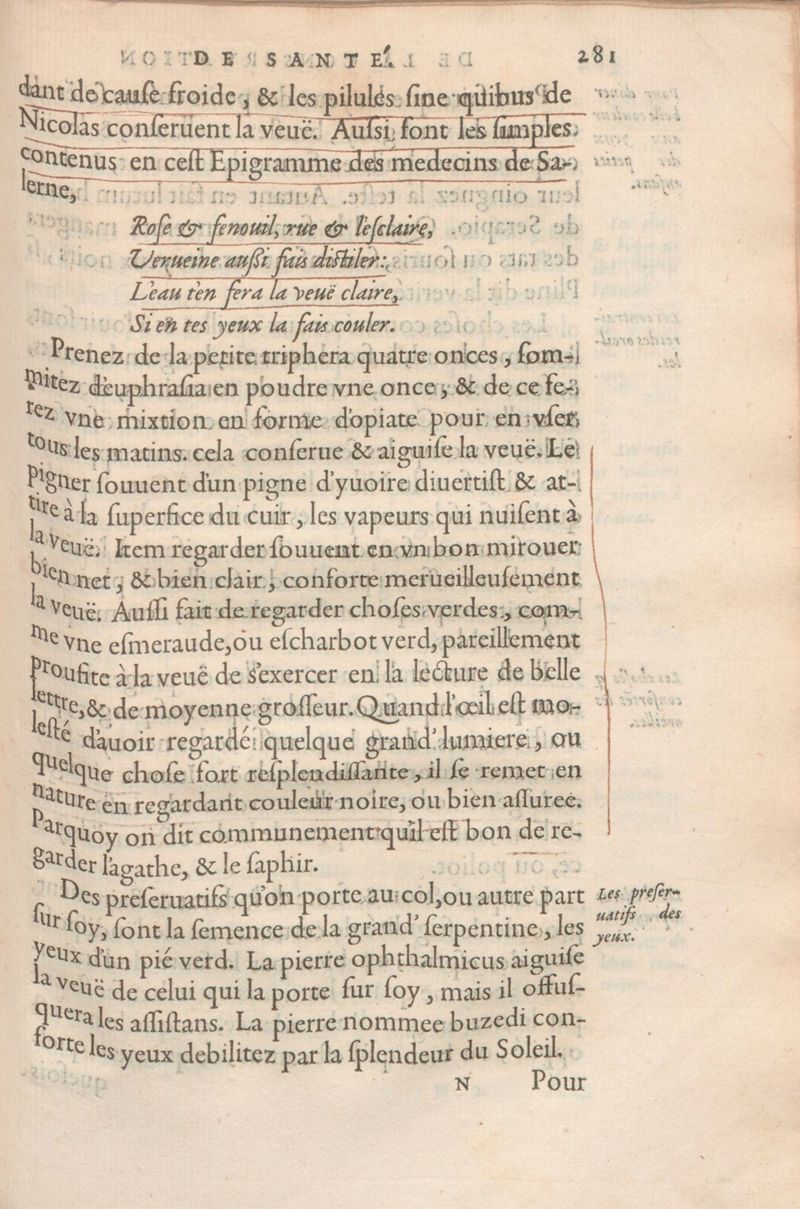 DE SANTÉ. 281
dant de cauſe froide, & les pilules ſine quibus de
Nicolas conſeruent la veuë. Auſsi, font les ſimples
contenus en ceſt Epigramme des medecins de Sa-
lerne,
Roſe & fenouil, rue & l'eſclaire,
Verueine auſſi fais diſtiler:
L'eau t'en ſera la veuë claire,
Si en tes yeux la fais couler.
Prenez de la petite triphera quatre onces, ſom-
mitez d'euphraſia en poudre vne once, & de ce fe-
rez vne mixtion en forme d'opiate pour en vſer
tous les matins. cela conſerue & aiguiſe la veuë. Le
Pigner ſouuent d'un pigne d'yuoire diuertiſt & at-
tire à la ſuperfice du cuir, les vapeurs qui nuiſent à
la veuë. Item regarder ſouuent en vn bon mirouer
bien net, & bien clair, conforte merueilleuſement
la veuë. Auſſi fait de regarder choſes verdes, com-
me vne eſmeraude, ou eſcharbot verd, pareillement
proufite à la veuë de s'exercer en la lecture de belle
lettre, & de moyenne groſſeur. Quand l'œil eſt mo-
leſté d'auoir regardé quelque grand' lumiere, ou
quelque choſe fort reſplendiſſante, il ſe remet en
nature en regardant couleur noire, ou bien aſſuree.
Parquoy on dit communement qu'il eſt bon de re-
garder l'agathe, & le ſaphir.
Des preſeruatifs qu'on porte au col, ou autre part
ſur ſoy, ſont la ſemence de la grand' ſerpentine, les
yeux d'un pié verd. La pierre ophthalmicus aiguiſe
la veuë de celui qui la porte ſur ſoy, mais il offuſ-
quera les aſſiſtans. La pierre nommee buzedi con-
forte les yeux debilitez par la ſplendeur du Soleil.
Les preſer-
uatifs des
yeux.
N Pour